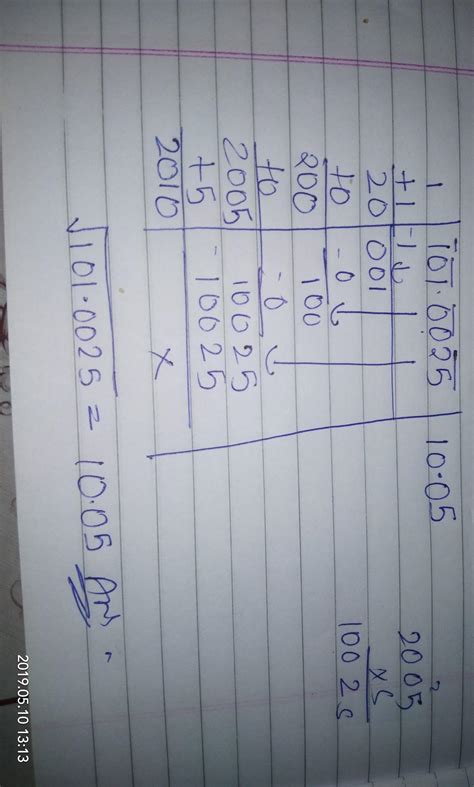 1 101.0025 10.05
+1 -1↓
20 001
+0 -0↓
200 100
+0 -0↓
2005 10025
+5 -10025
2010 x
2
2005
x5
10025
√101.0025 = 10.05 Ans.
2019.05.10 13:13